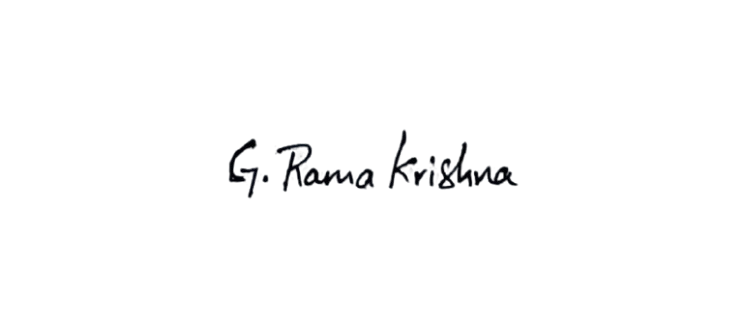 G. Rama Krishna